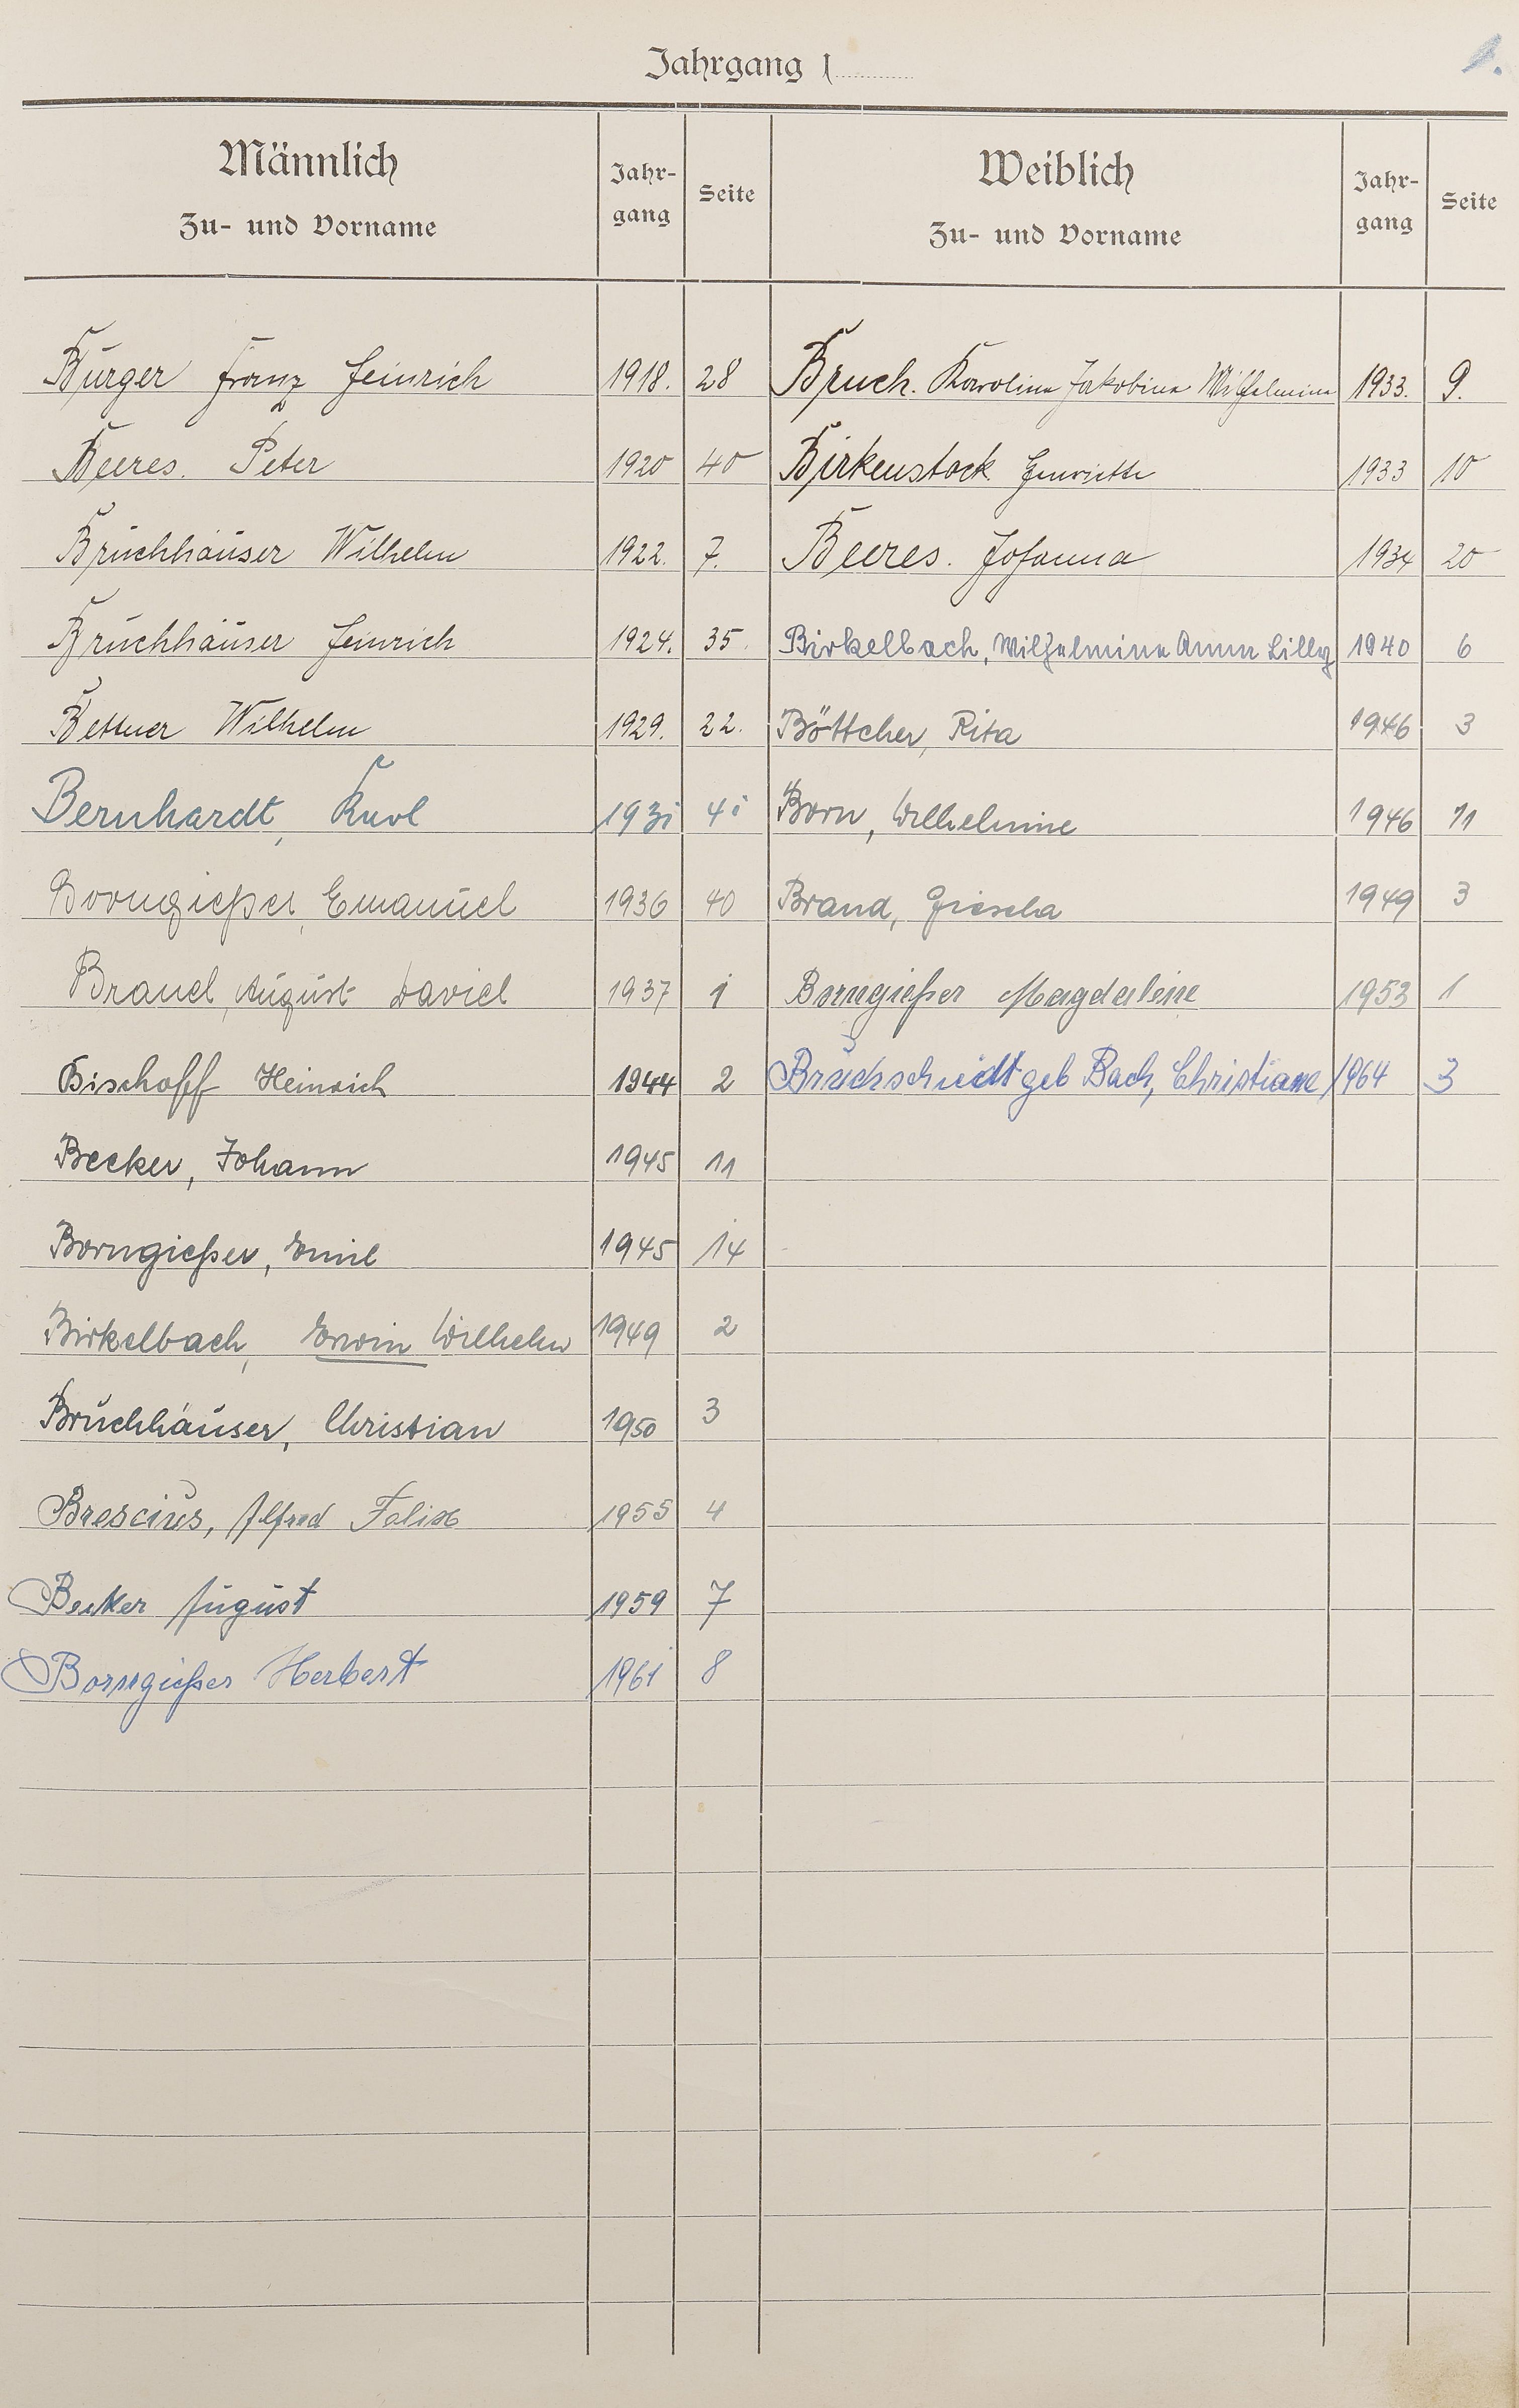 Jahrgang 1
1.
Männlich
Zu- und Vorname
Jahr-
gang
Seite
Weiblich
Zu- und Vorname
Jahr-
gang
Seite
Bürger Franz Heinrich 1918. 28 Bruch. Karolina Jakobina Wilhelmina 1933. 9.
Beeres. Peter 1920 40 Birkenstock. Henriette 1933 10
Bruchhäuser Wilhelm 1922. 7. Beeres. Johanna 1934 20
Bruchhäuser Heinrich 1924. 35. Birkelbach, Wilhelmine Anna Lilly 1940 6
Bettner Wilhelm 1929. 22. Böttcher, Rita 1946 3
Bernhardt, Karl 1931 41 Born, Wilhelmine 1946 11
Borngießer, Emanuel 1936 40 Brand, Giesela 1949 3
Brauel, August David 1937 1 Borngießer Magdalene 1953 1
Bischoff Heinrich 1944 2 Bruchschiedt geb Bach, Christiane 1964 3
Becker, Johann 1945 11
Borngießer, Emil 1945 14
Birkelbach, Erwin Wilhelm 1949 2
Bruchhäuser, Christian 1950 3
Brescius, Alfred Felix 1955 4
Becker August 1959 7
Borngießer Herbert 1961 8